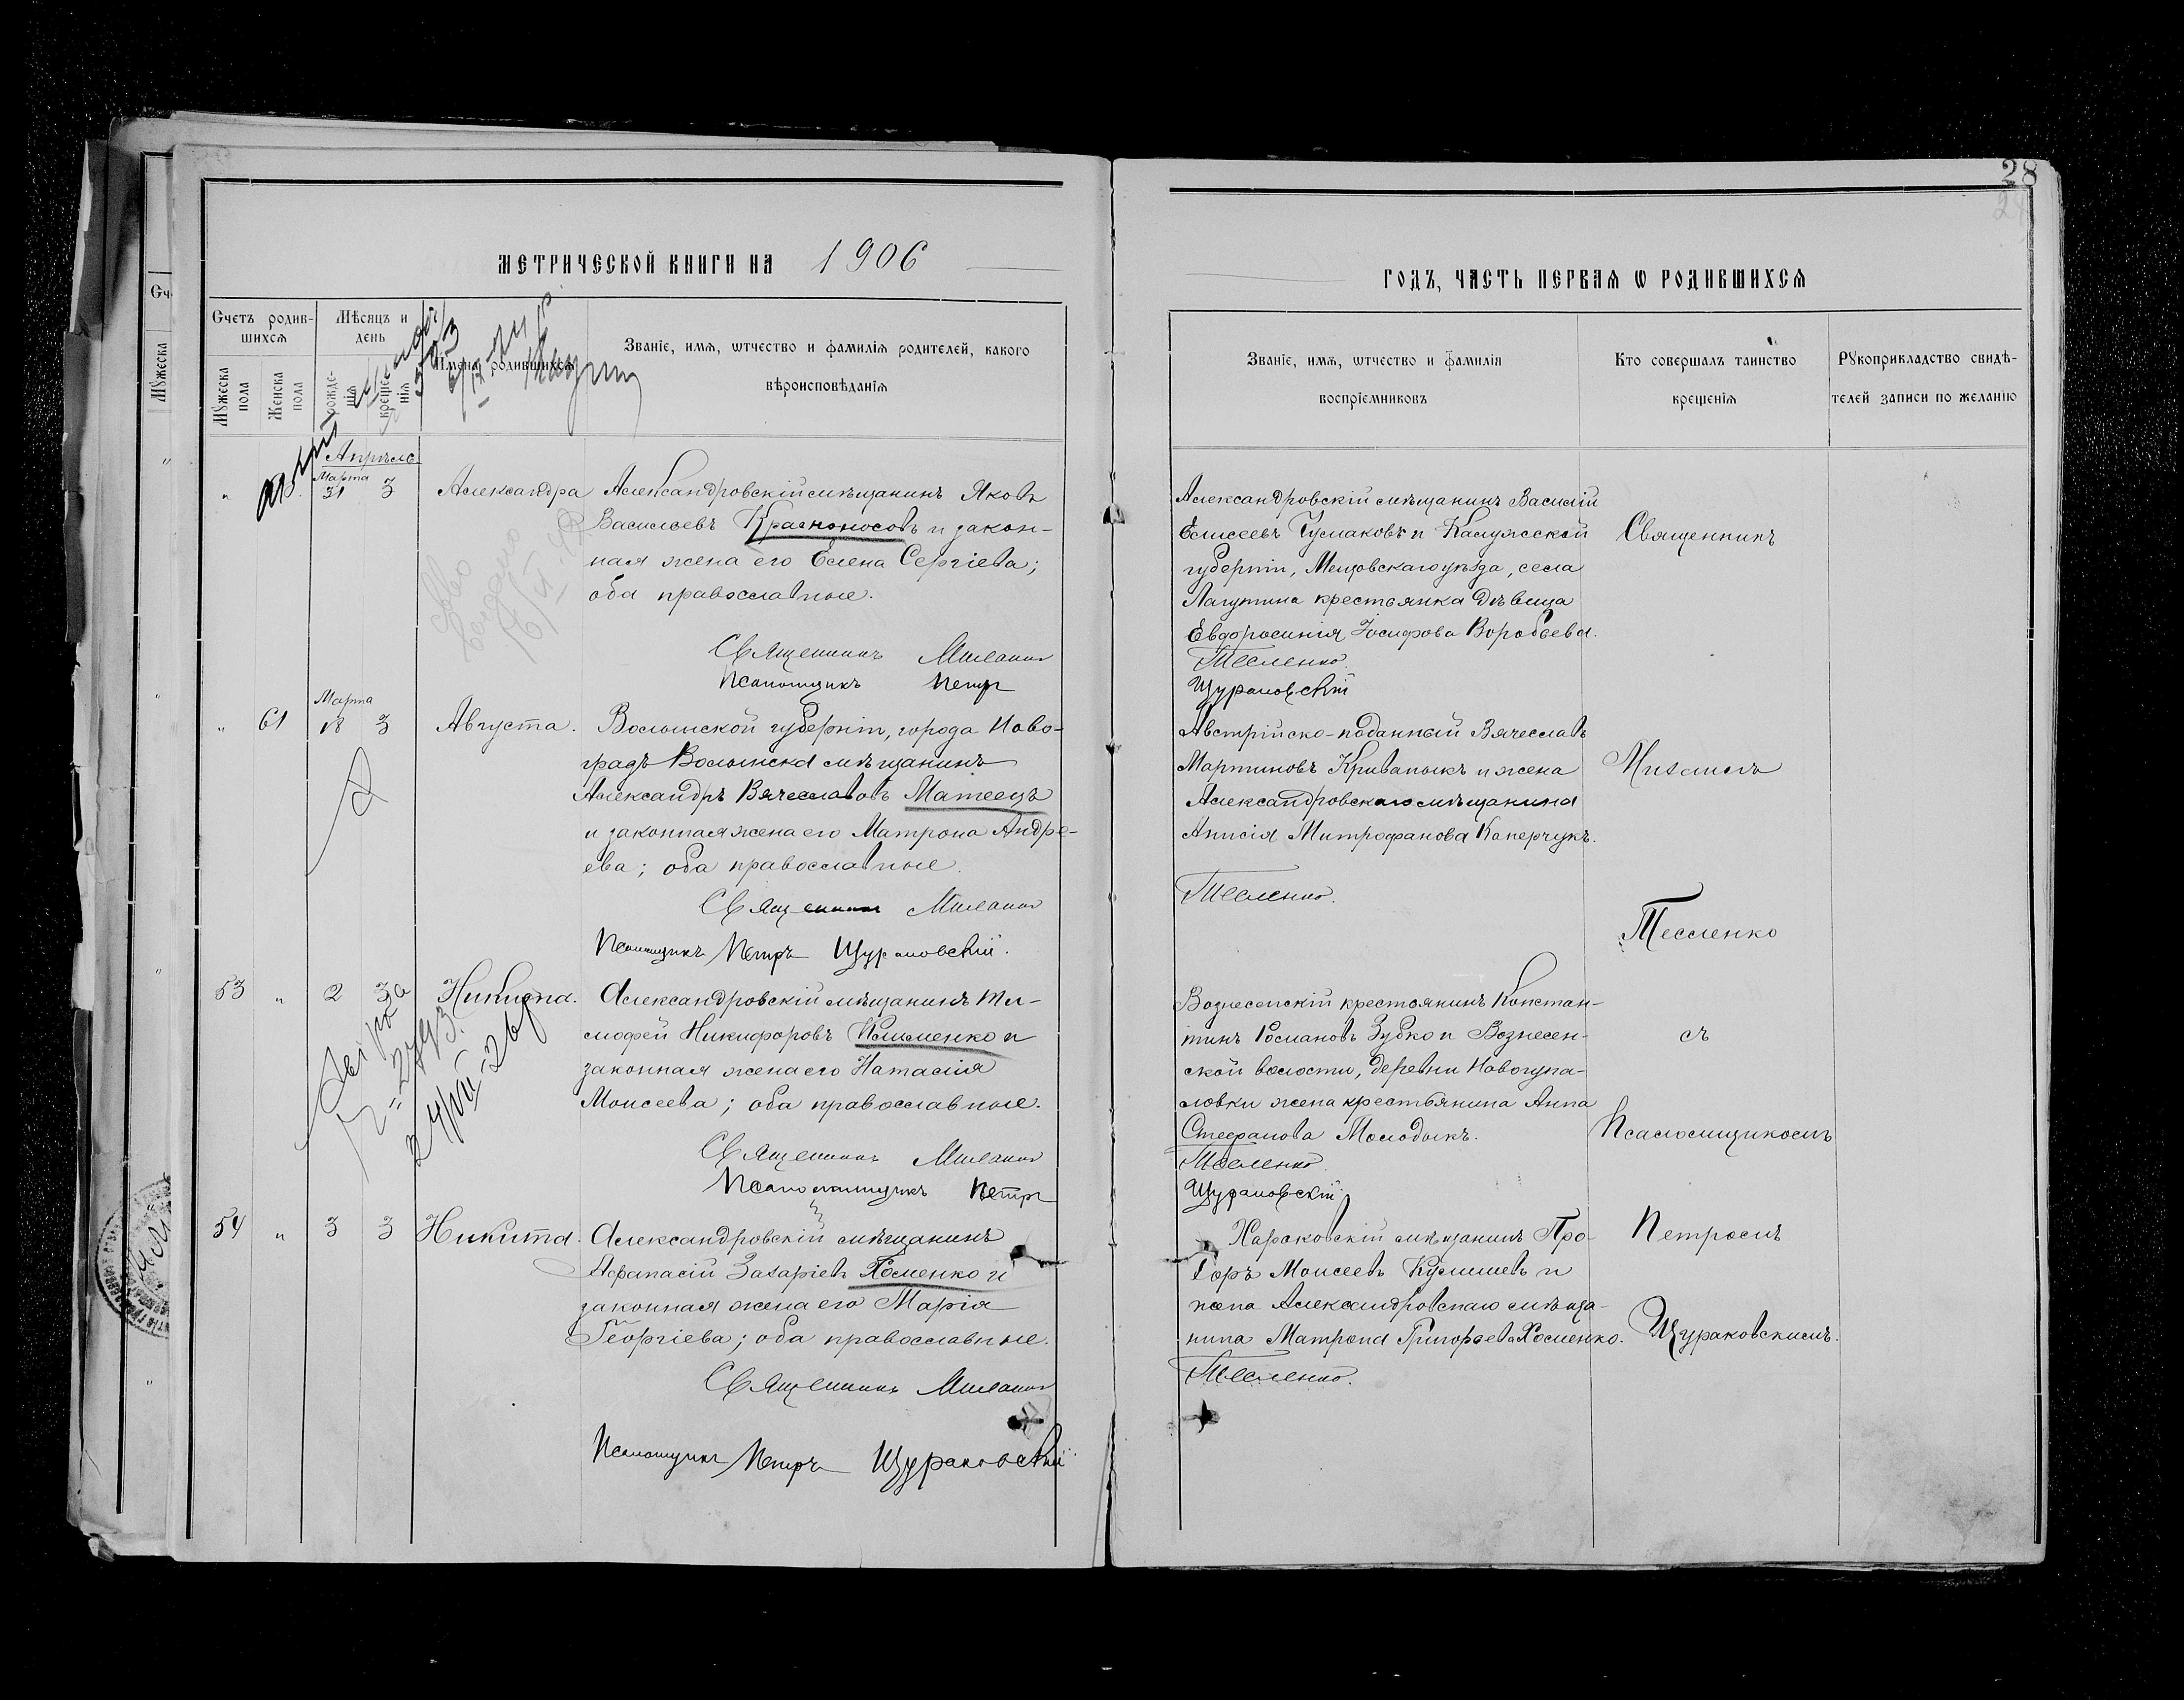 28
МЕТРИЧЕСКОЙ КНИГИ НА 1906
ГОДЪ, ЧАСТЬ ПЕРВАЯ Ѡ РОДИВШИХСЯ
Счетъ родив-
шихся
Мꙋжеска
пола
Женска
пола
Мѣсяцъ и
день
рожде-
нія
креще-
нія
Имена родившихся
Званіе, имя, ѡтчество и фамилія родителей, какого
вѣроисповѣданія
Званіе, имя, ѡтчество и фамилія
воспріемниковъ
Кто совершалъ таинство
крещенія
Рꙋкоприкладство свидѣ-
телей записи по желанію
Апрѣль
Марта
31 3 Александра Александровскій мѣщанинъ Яковъ
Васильевъ Красноносовъ и закон-
ная жена его Елена Сергіева;
оба православные.
Священникъ Михаилъ
Псаломщикъ Петръ
Александровскій мѣщанинъ Василій
Елисеевъ Чумаковъ и Калужской
губерніи, Мещовскаго уѣзда, села
Лагутина крестьянка дѣвица
Евфросинія Іосифова Воробьева.
Тесленко.
Щураковскій
Марта
" 61 18 3 Августа. Волынской губерніи, города Ново-
градъ Волынска мѣщанинъ
Александръ Вячеславовъ Матеецъ
и законная жена его Матрона Андре-
ева; оба православные.
Священникъ Михаилъ
Псаломщикъ Петръ Щураковскій.
Австрійско-поданный Вячеславъ
Мартиновъ Криванькъ и жена
Александровскаго мѣщанина
Анисія Митрофанова Каперчукъ.
Тесленко.
53 " 2 3 Никита. Александровскій мѣщанинъ Ти-
мофей Никифоровъ Клименко и
законная жена его Наталія
Моисеева; оба православные.
Священникъ Михаилъ
Псаломщикъ Петръ
Вознесенскій крестьянинъ Констан-
тинъ Романовъ Зубко и Вознесен-
ской волости, деревни Новогупа-
ловки жена крестьянина Анна
Стефанова Молодыкъ.
Тесленко.
Щураковскій
54 " 3 3 Никита. Александровскій мѣщанинъ
Афанасій Захаріевъ Хоменко и
законная жена его Марія
Георгіева; оба православные.
Священникъ Михаилъ
Псаломщикъ Петръ Щураковскій
Харьковскій мѣщанинъ Про-
хоръ Моисеевъ Кулишевъ и
жена Александровскаго мѣща-
нина Матрона Григорьева Хоменко.
Тесленко.
Священникъ
Михаилъ
Тесленко
съ
Псаломщикомъ
Петромъ
Щураковскимъ.